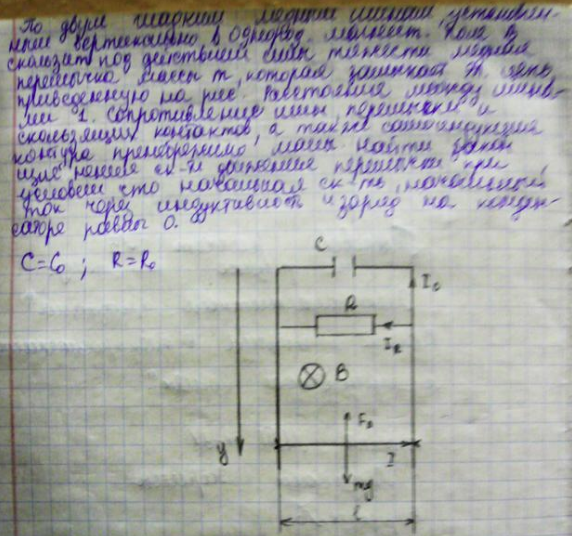 По двум гладким медным шинам, установлен-
ным вертикально в однород. магнит. поле В
скользит под действием силы тяжести медная
перемычка массы m, которая замыкает эл. цепь,
приведенную на рис. Расстояние между шина-
ми l. Сопротивление шины, перемычки и
скользящих контактов, а также самоиндукция
контура пренебрежимо малы. Найти закон
ск-ти движения перемычки при
условии что начальная ск-ть, начальный
ток через индуктивность и заряд на конден-
саторе равны 0.
C=C₀ ; R=R₀
C
I_c
R
I_R
B
F_A
y
I
mg
l